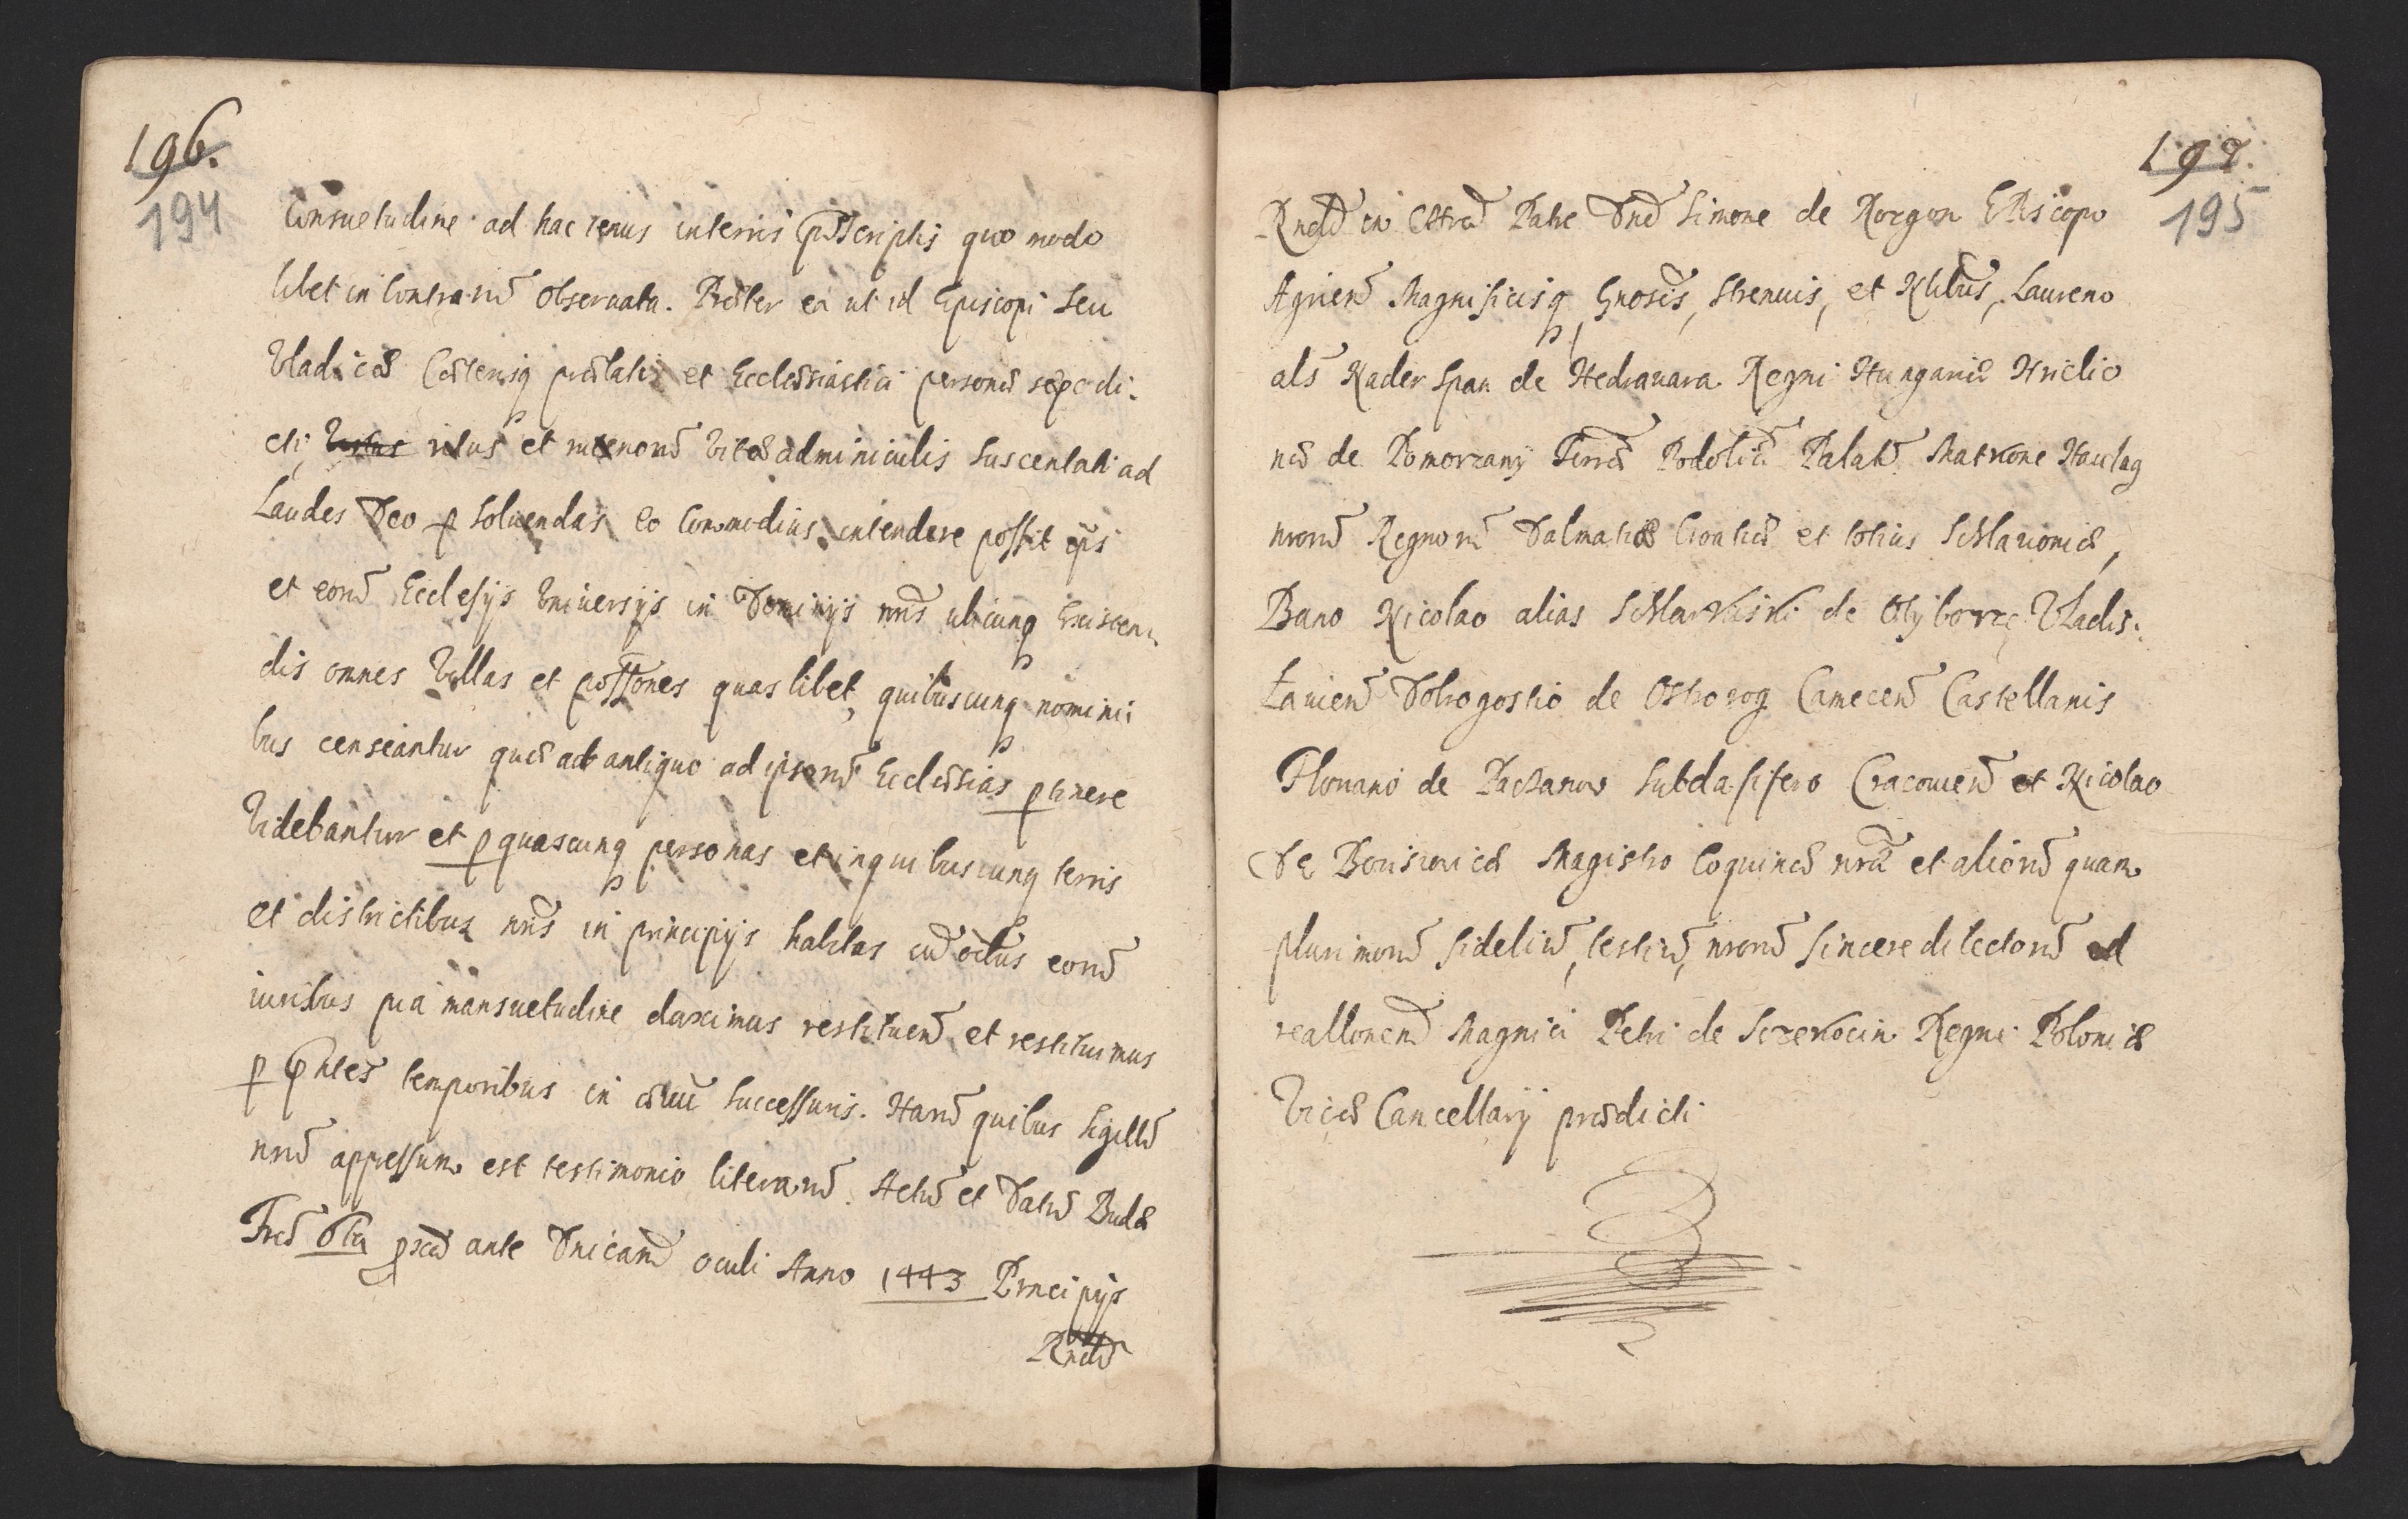 196.
194
Consuetudine ad hactenus in terris pñscriptis quomodo
libet in Contrariũ obseruata. Præter ea ut id Episcopi seu
Vladicæ Cæteriq prælati et Ecclæsiasticæ personæ sæpe di-
cti, ritus et rutenorũ Vitæ adminiculis suscentati ad
Laudes Deo p soluendas eo Commodius intendere possit ipsi
et eorũ Ecclesijs Vniversijs in Dominijs nris ubicunq Existen-
dis omnes Villas et possones quaslibet, quibuscunq nomini
bus censeantur quæ ab antiquo ad ipsorũ Ecclæsias ptinere
Videbantur et p quascunq personas et in quibuscunq terris
et districtibus nris in principijs habitas cũ oibus eorũ
iuribus pia mansuetudine duximus restituenđ et restituimus
p pñtes temporibus in æuũ successuris. Harũ quibus Sigillũ
nrũ appressum est testimonio literarũ. Actũ et Datũ Budæ
Friã 6ta pxiã ante Dnicam oculi Anno 1443 Prncipijs
Rndo
197.
195
Rndo in Chro Patre Dno Simone de Rozgon EPiscopo
Agrien Magnificisq, Gnosis, strenuis, et Nlibus, Laureno
als Nader span de Hedrauara Regni Hungariæ
de Pomorzany Terræ Podoliæ Palatĩ Matkone
nrorũ Regnorũ Dalmatiæ Croatiæ et totius Schlavoniæ,
Bano Nicolao alias de Vladis-
lauien Dobrogostio de Ostrorog Camecen Castellanis
Floriano de Paczanow Subdapifero Cracouien et Nicolao
De Magistro Coquinæ nræ et aliorũ quam
plurimorũ fideliũ, testiũ, nrorũ sincere dilectorũ ad
reallonem Magnici Petri de Sczekocin Regni Poloniæ
Viciæ Cancellarij prædicti